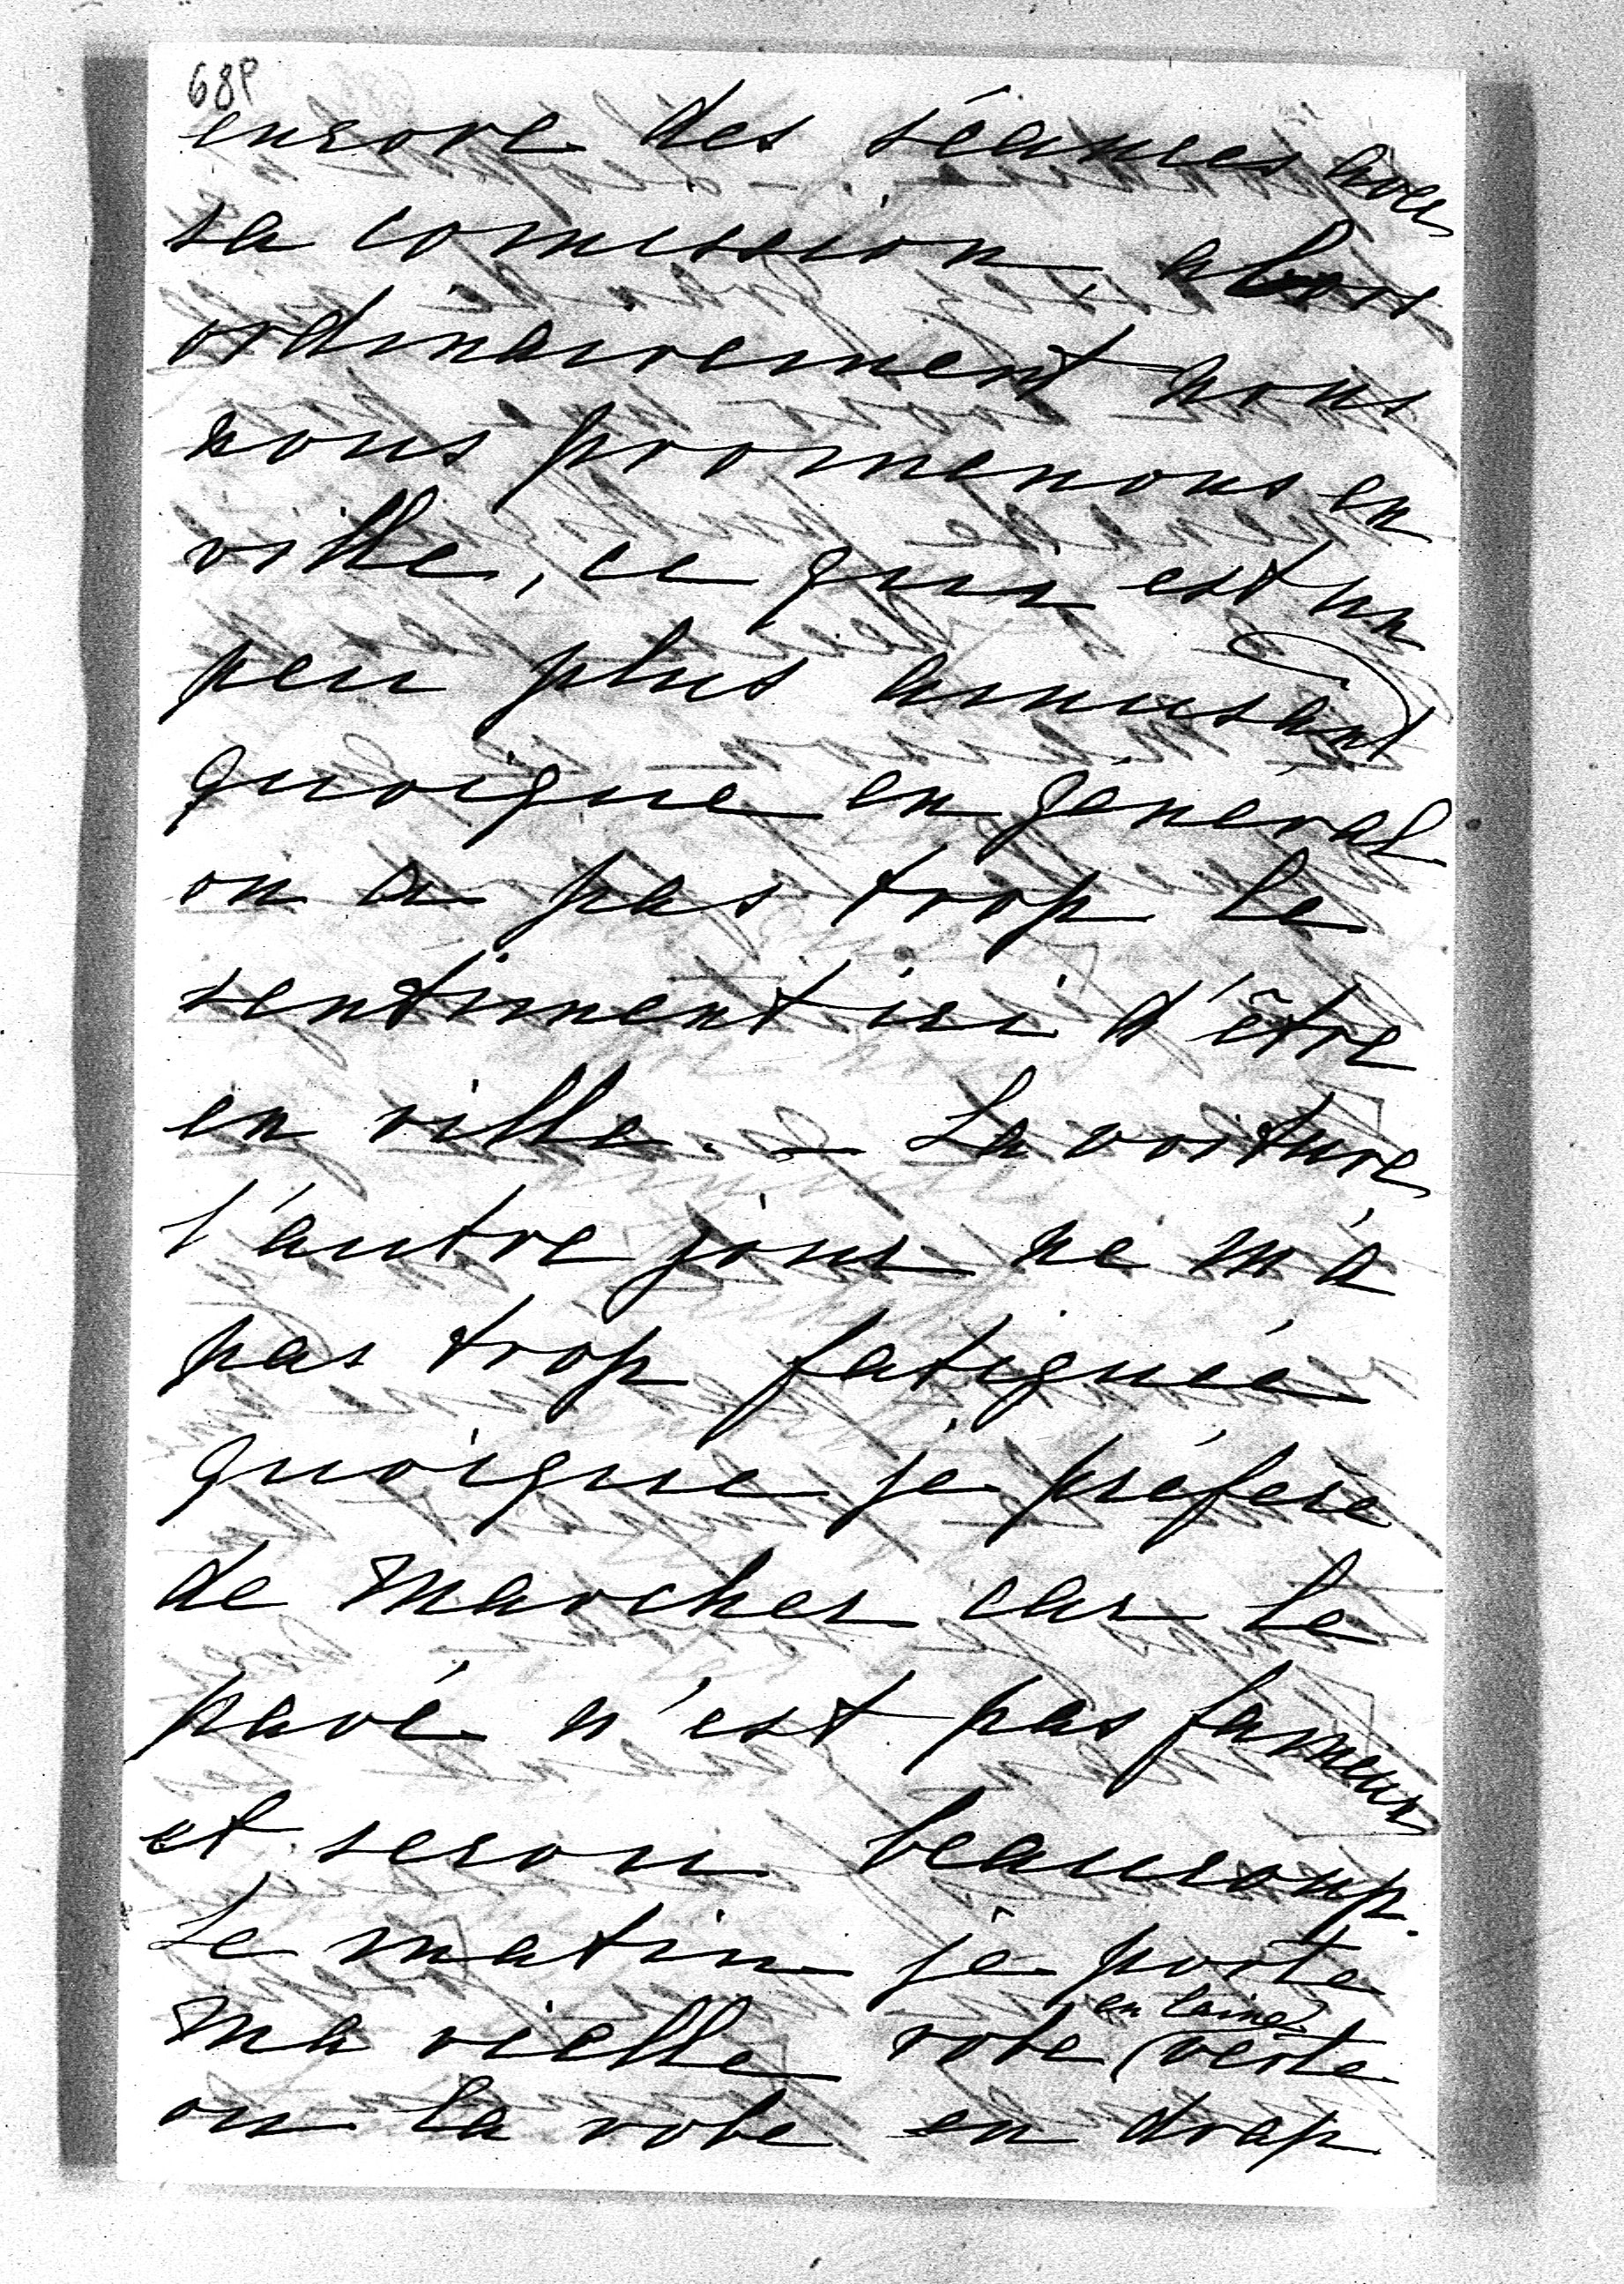 68P
encore des séances avec
sa comission, alors
ordinairement nous
nous promenons en
ville, ce qui est un
peu plus amusant
quoique en général
on a pas trop le
sentiment ici d'être
en ville. — La voiture
l'autre jour ne m'a
pas trop fatiguée
quoique je préfère
de marcher car le
pavé n'est pas fameux
et secou beaucoup.
Le matin je porte
ma vielle robe (en laine) verte
ou la robe en drap